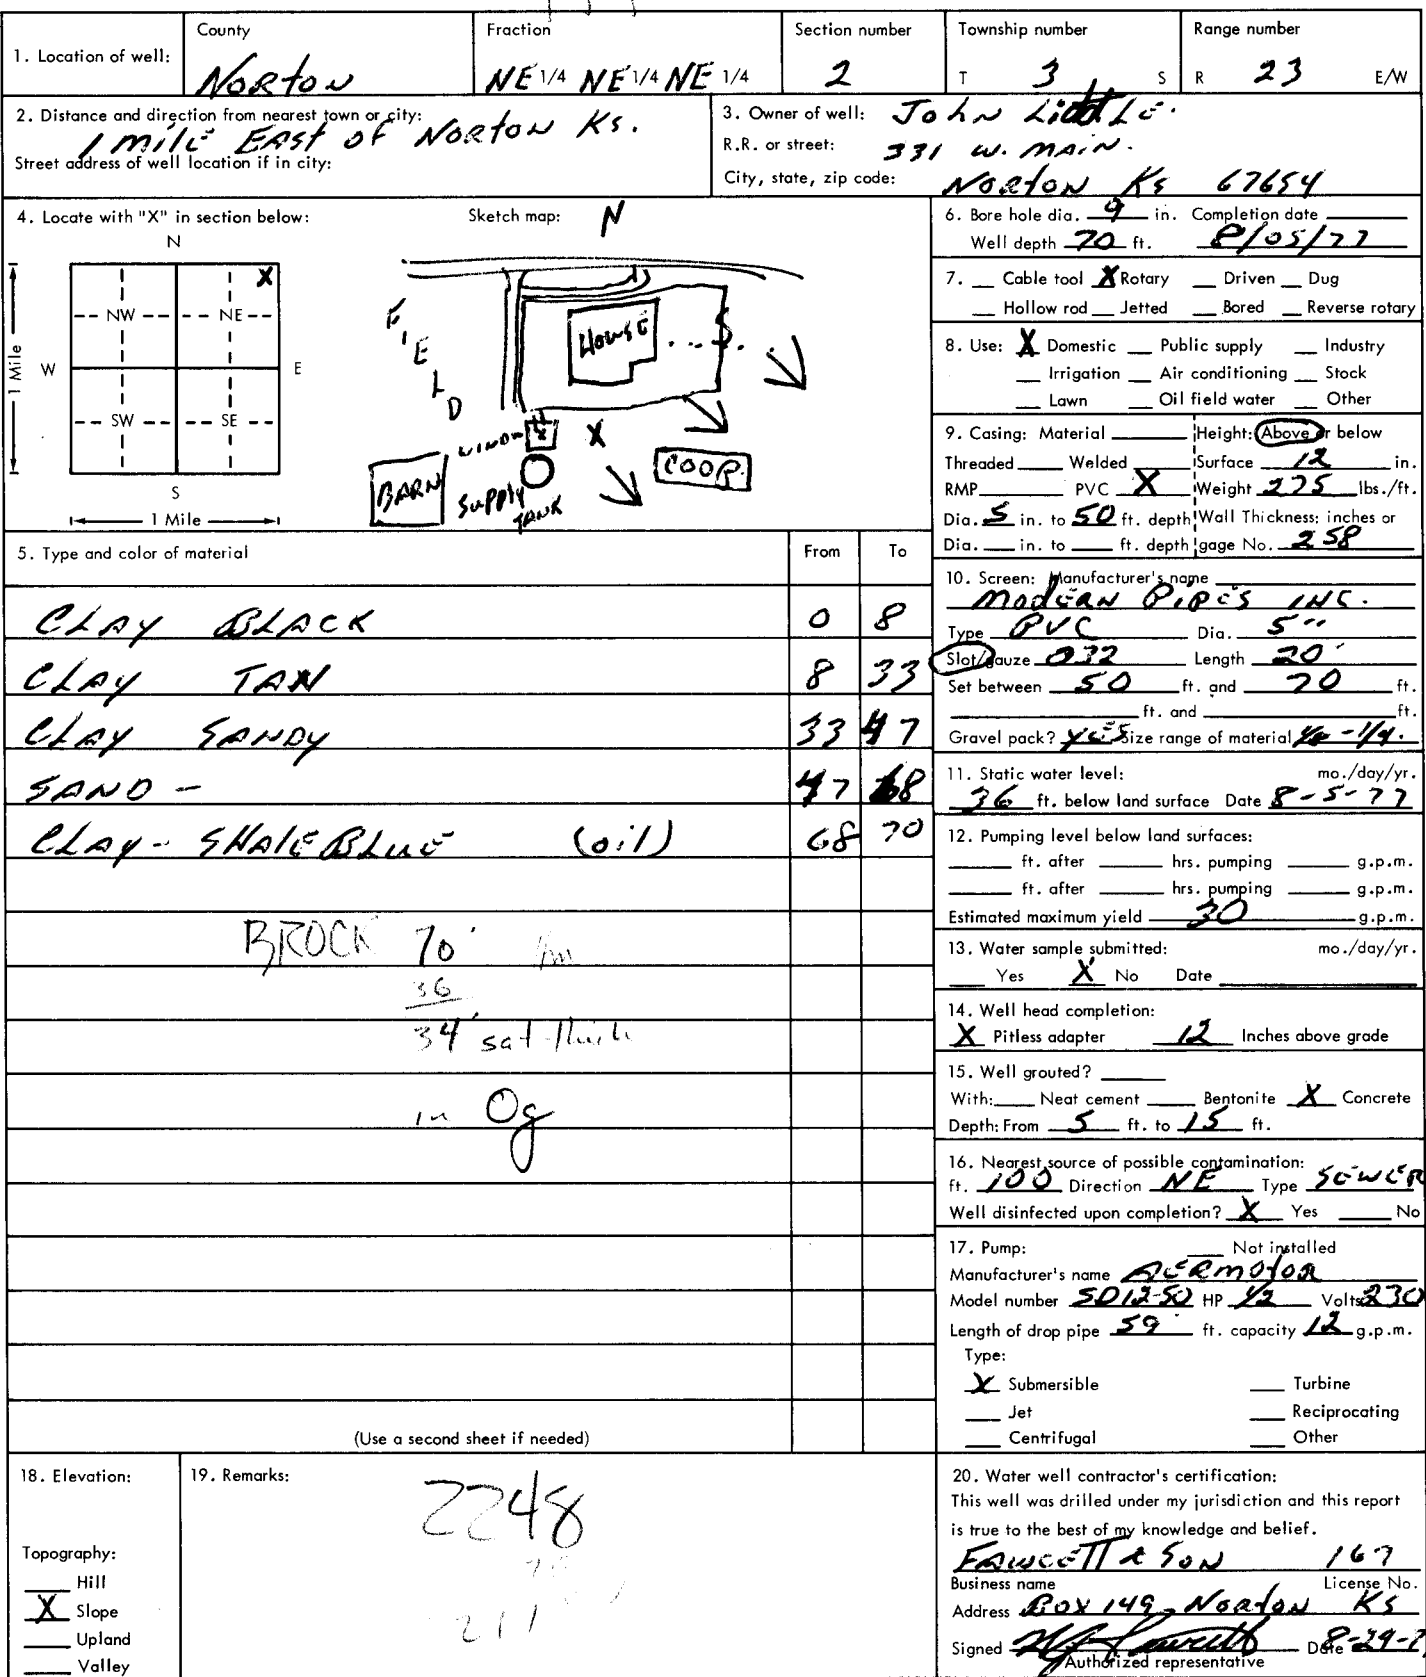 County Fraction Section number Township number Range number
1. Location of well: Norton NE 1/4 NE 1/4 NE 1/4 2 T 3 S R 23 E/W
2. Distance and direction from nearest town or city:
1 mile East of Norton Ks.
Street address of well location if in city:
3. Owner of well: John Liddle.
R.R. or street: 331 W. Main.
City, state, zip code: Norton Ks 67654
4. Locate with "X" in section below:
N
X
NW NE
W E
SW SE
S
1 Mile
1 Mile
Sketch map: N
FIELD
HOUSE
...S..
X
BARN
SUPPLY TANK
COOP
6. Bore hole dia. 9 in. Completion date
Well depth 70 ft. 8/05/77
7. Cable tool X Rotary Driven Dug
Hollow rod Jetted Bored Reverse rotary
8. Use: X Domestic Public supply Industry
Irrigation Air conditioning Stock
Lawn Oil field water Other
9. Casing: Material Height: Above or below
Threaded Welded Surface 12 in.
RMP PVC X Weight 275 lbs./ft.
Dia. 5 in. to 50 ft. depth Wall Thickness: inches or
Dia. in. to ft. depth gage No. 258
5. Type and color of material From To
CLAY BLACK 0 8
CLAY TAN 8 33
CLAY SANDY 33 47
SAND - 47 68
CLAY - SHALE BLUE (oil) 68 70
BROCK 70'
36
34' sat thick
in Og
(Use a second sheet if needed)
10. Screen: Manufacturer's name
Modern Pipes Inc.
Type PVC Dia. 5"
Slot/gauze 032 Length 20'
Set between 50 ft. and 70 ft.
ft. and ft.
Gravel pack? Yes Size range of material 1/8 - 1/4.
11. Static water level: mo./day/yr.
36 ft. below land surface Date 8-5-77
12. Pumping level below land surfaces:
ft. after hrs. pumping g.p.m.
ft. after hrs. pumping g.p.m.
Estimated maximum yield 30 g.p.m.
13. Water sample submitted: mo./day/yr.
Yes X No Date
14. Well head completion:
X Pitless adapter 12 Inches above grade
15. Well grouted?
With: Neat cement Bentonite X Concrete
Depth: From 5 ft. to 15 ft.
16. Nearest source of possible contamination:
ft. 100 Direction NE Type SEWER
Well disinfected upon completion? X Yes No
17. Pump: Not installed
Manufacturer's name Aermotor
Model number SD12-50 HP 1/2 Volts 230
Length of drop pipe 59' ft. capacity 12 g.p.m.
Type:
X Submersible Turbine
Jet Reciprocating
Centrifugal Other
18. Elevation:
Topography:
Hill
X Slope
Upland
Valley
19. Remarks:
2248
20. Water well contractor's certification:
This well was drilled under my jurisdiction and this report
is true to the best of my knowledge and belief.
Fawcett & Son 167
Business name License No.
Address Box 149, Norton Ks
Signed Date 8-29-7
Authorized representative